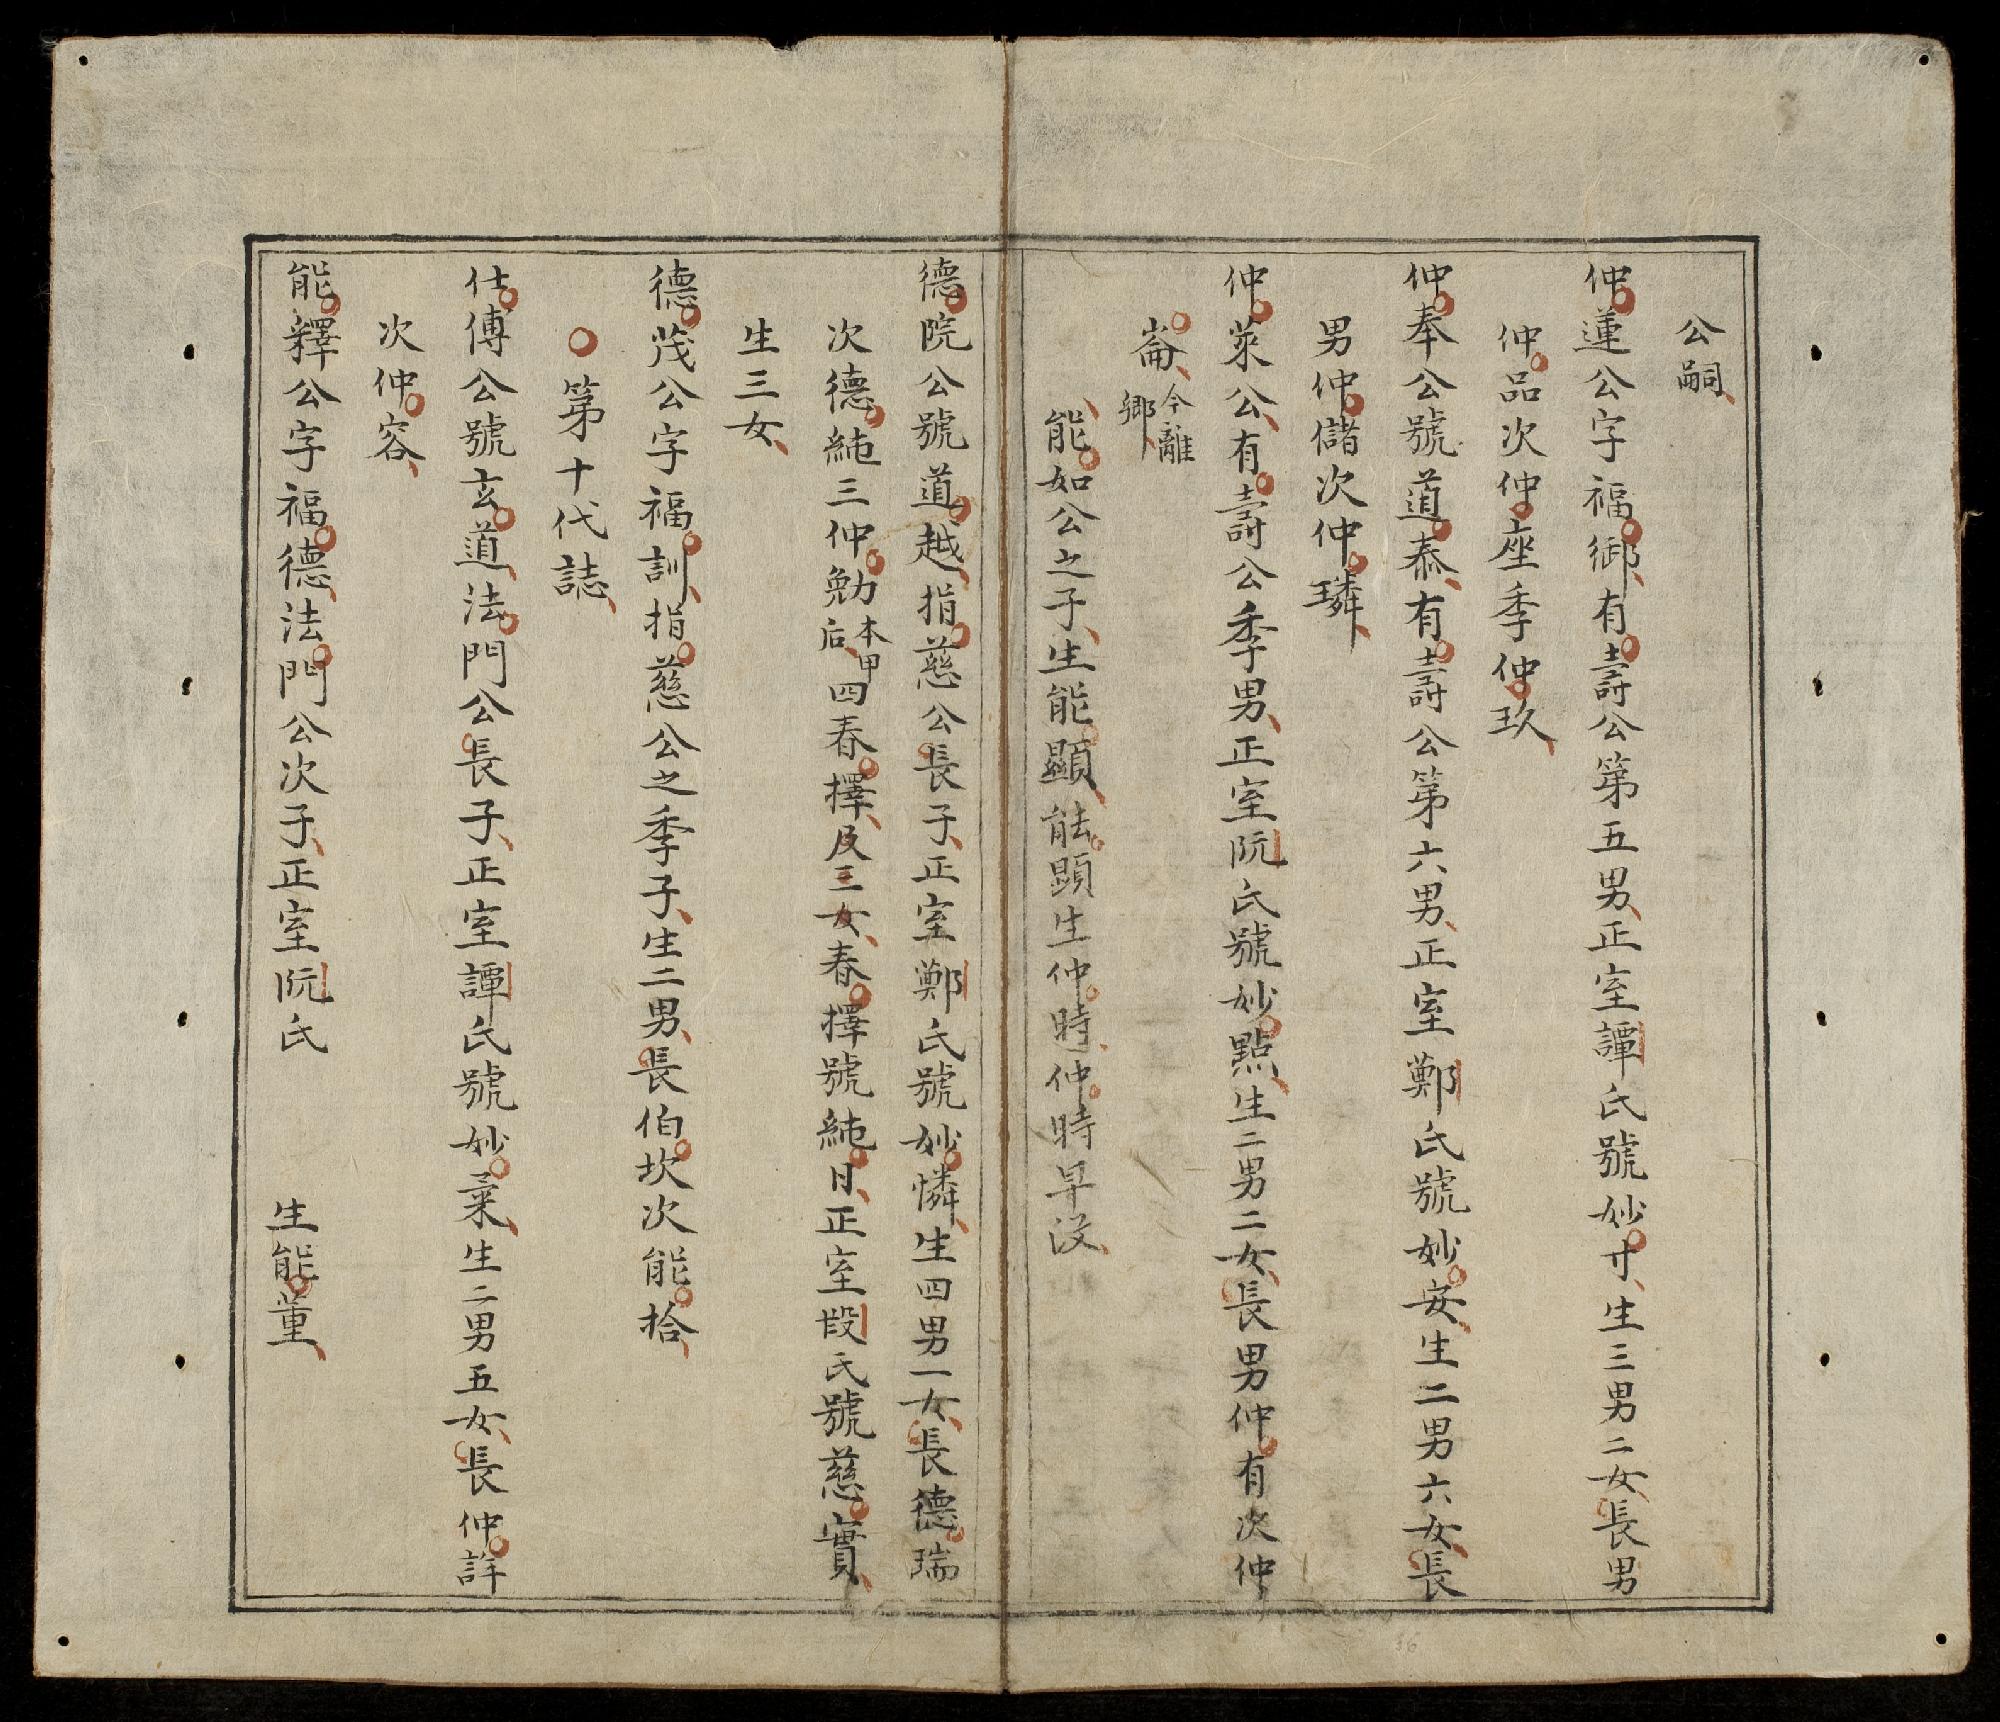 公嗣
仲蓮公字福御有壽公第五男正室譚氏號妙寸生三男二女長男
仲品次仲座季仲玖
仲奉公號道泰有壽公第六男正室鄭氏號妙安生二男六女長
男仲儲次仲璘
仲萊公有壽公季男正室阮氏號妙點生二男二女長男仲有次仲
崙今離鄉
能如公之子生能顯能顯生仲時仲時早没
德院公號道越指慈公長子正室鄭氏號妙憐生四男一女長德瑞
次德純三仲勉本甲后四春擇及三女春擇號純日正室段氏號慈實
生三女
德茂公字福訓指慈公之季子生二男長伯坎次能拾
第十代誌
仕傅公號玄道法門公長子正室譚氏號妙菜生二男五女長仲詳
次仲容
能釋公字福德法門公次子正室阮氏 生能董